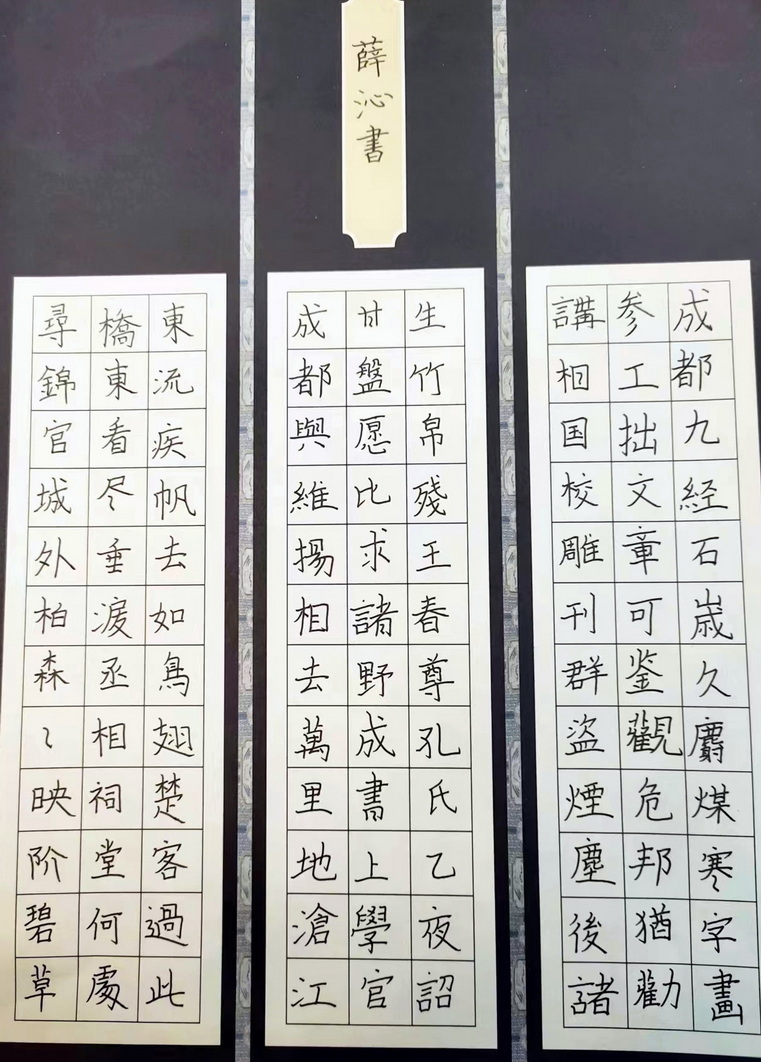 薛沁書
成都九経石歳久麝煤寒字畫
参工拙文章可鉴觀危邦猶勸
講相国校雕刊群盜煙塵後諸
生竹帛殘王春尊孔氏乙夜詔
甘盤愿比求諸野成書上學官
成都與維揚相去萬里地滄江
東流疾帆去如鳥翅楚客過此
橋東看尽垂淚丞相祠堂何處
尋錦官城外柏森〻映阶碧草